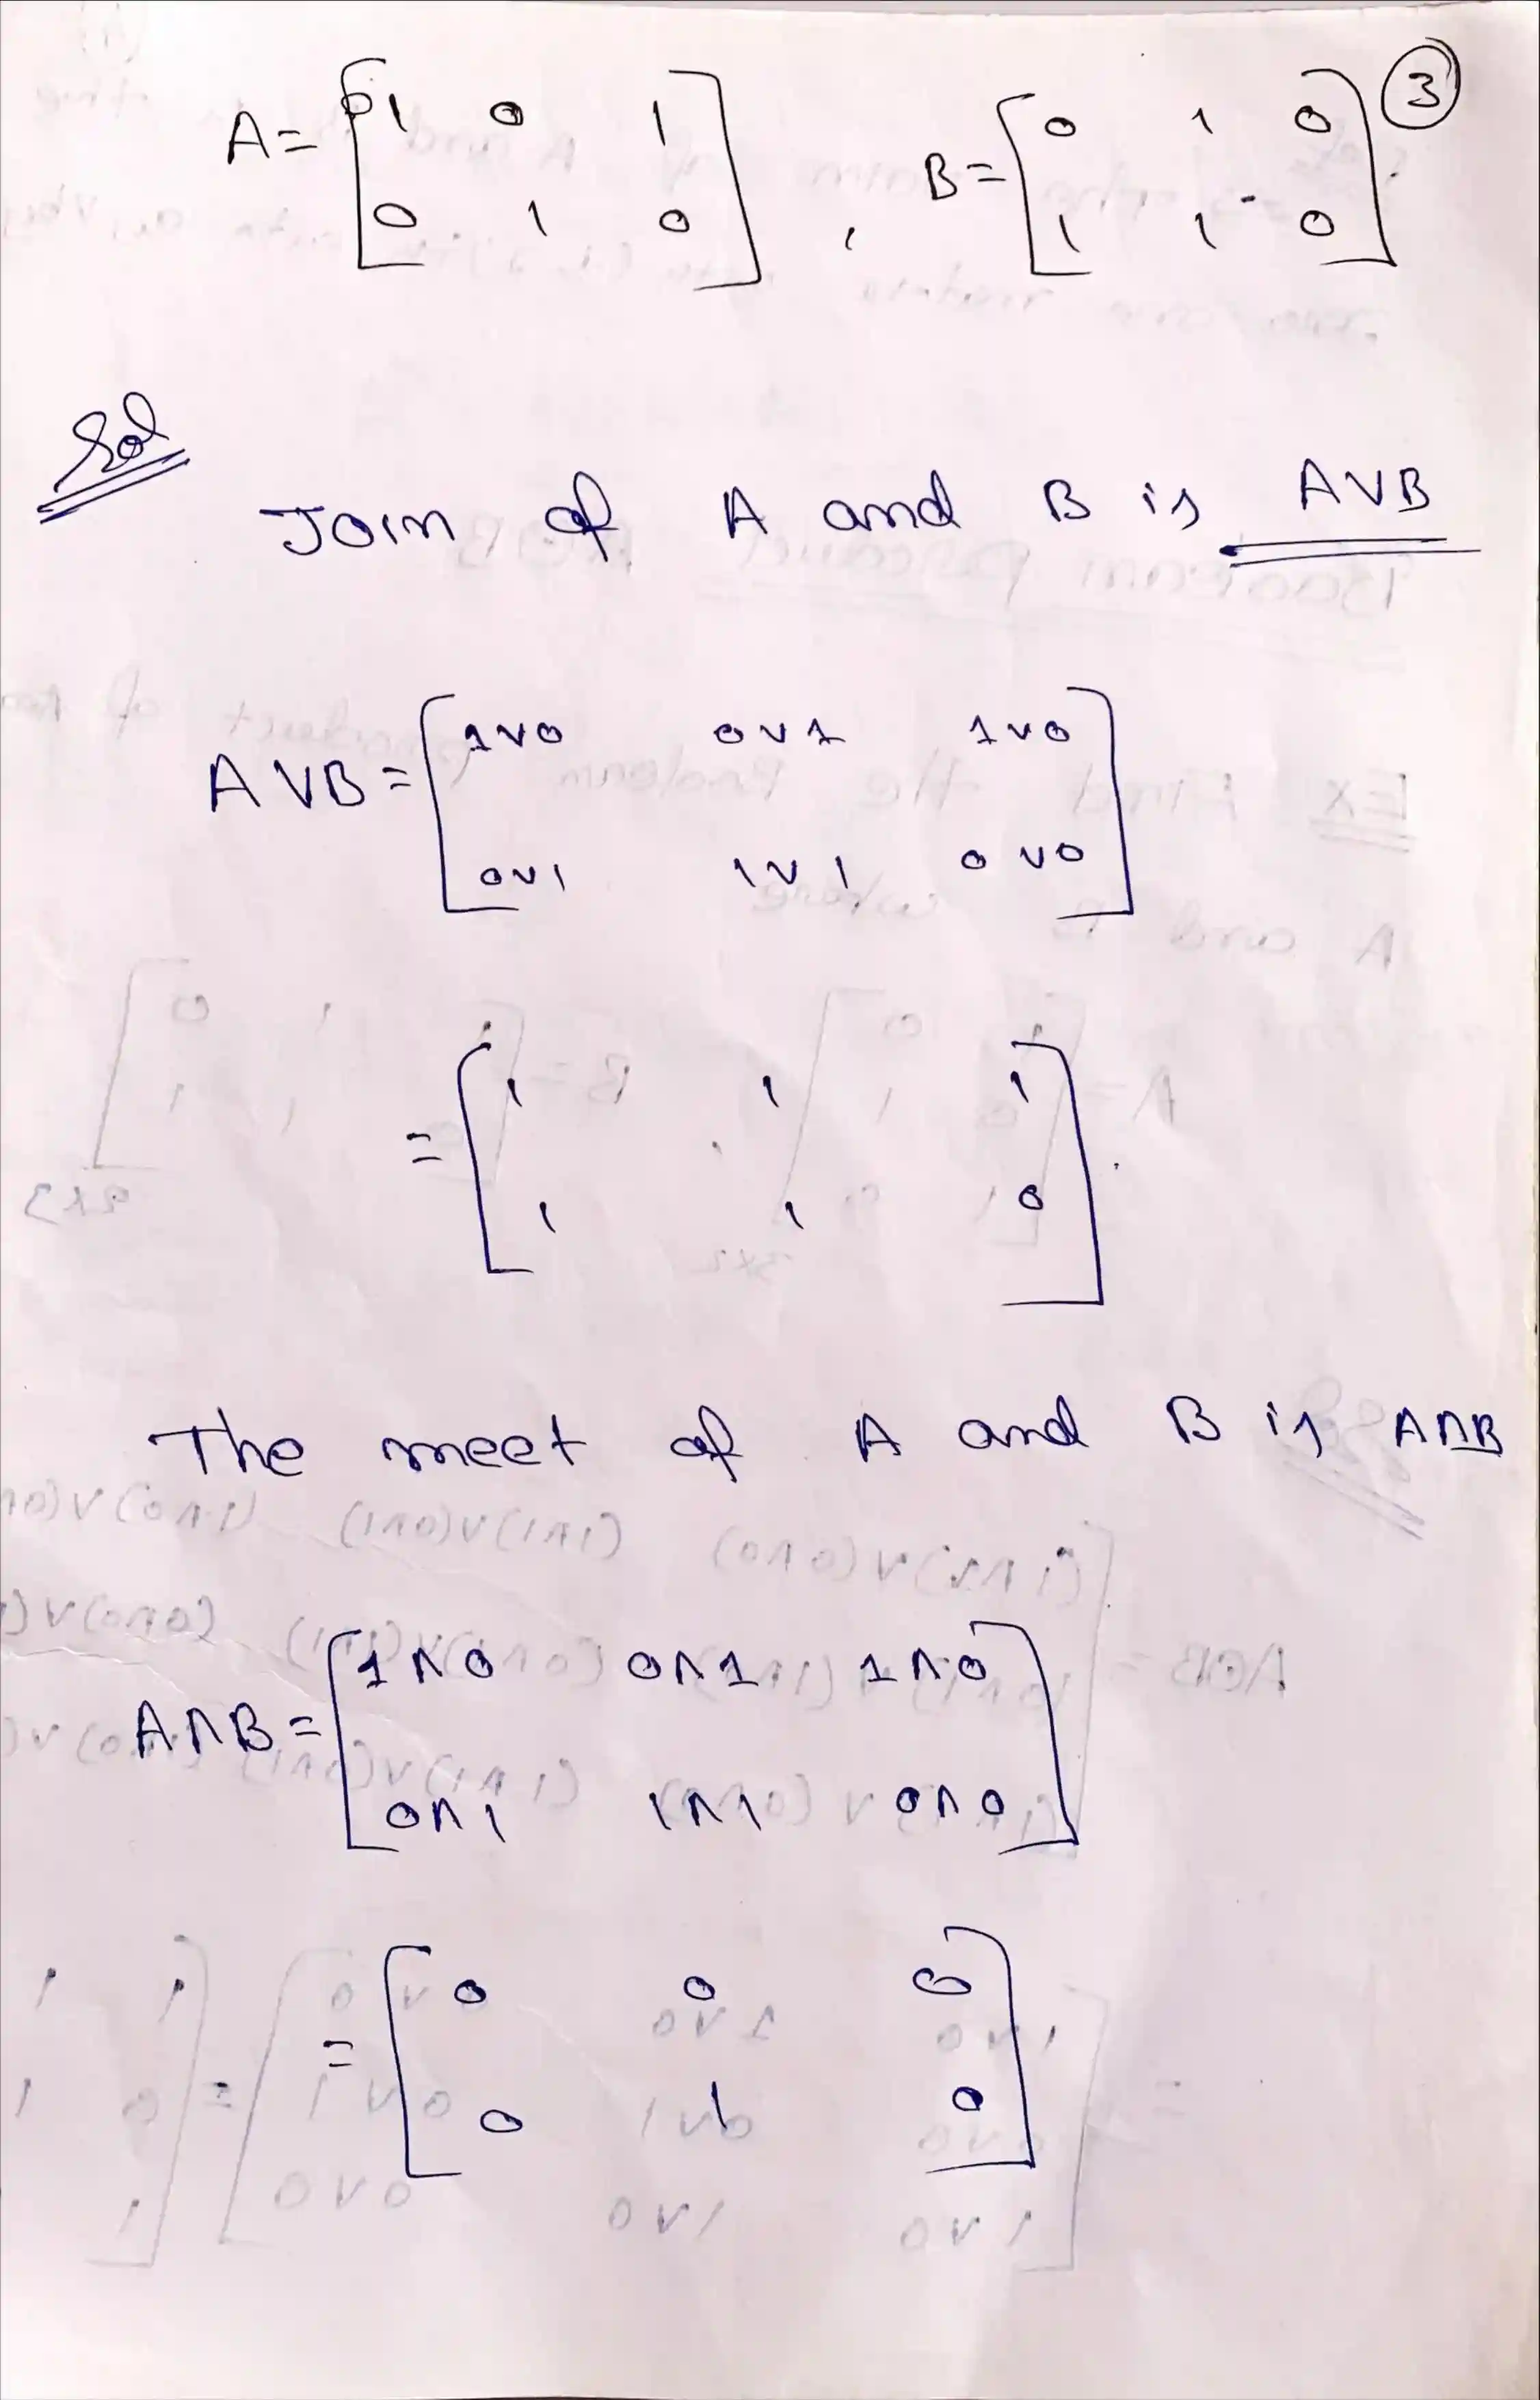 ③
A = [ 1 0 1
0 1 0 ] , B = [ 0 1 0
1 1 0 ].
Sol
Join of A and B is A∨B
A∨B = [ 1∨0 0∨1 1∨0
0∨1 1∨1 0∨0 ]
= [ 1 1 1
1 1 0 ].
The meet of A and B is A∧B
A∧B = [ 1∧0 0∧1 1∧0
0∧1 1∧1 0∧0 ]
= [ 0 0 0
0 1 0 ]